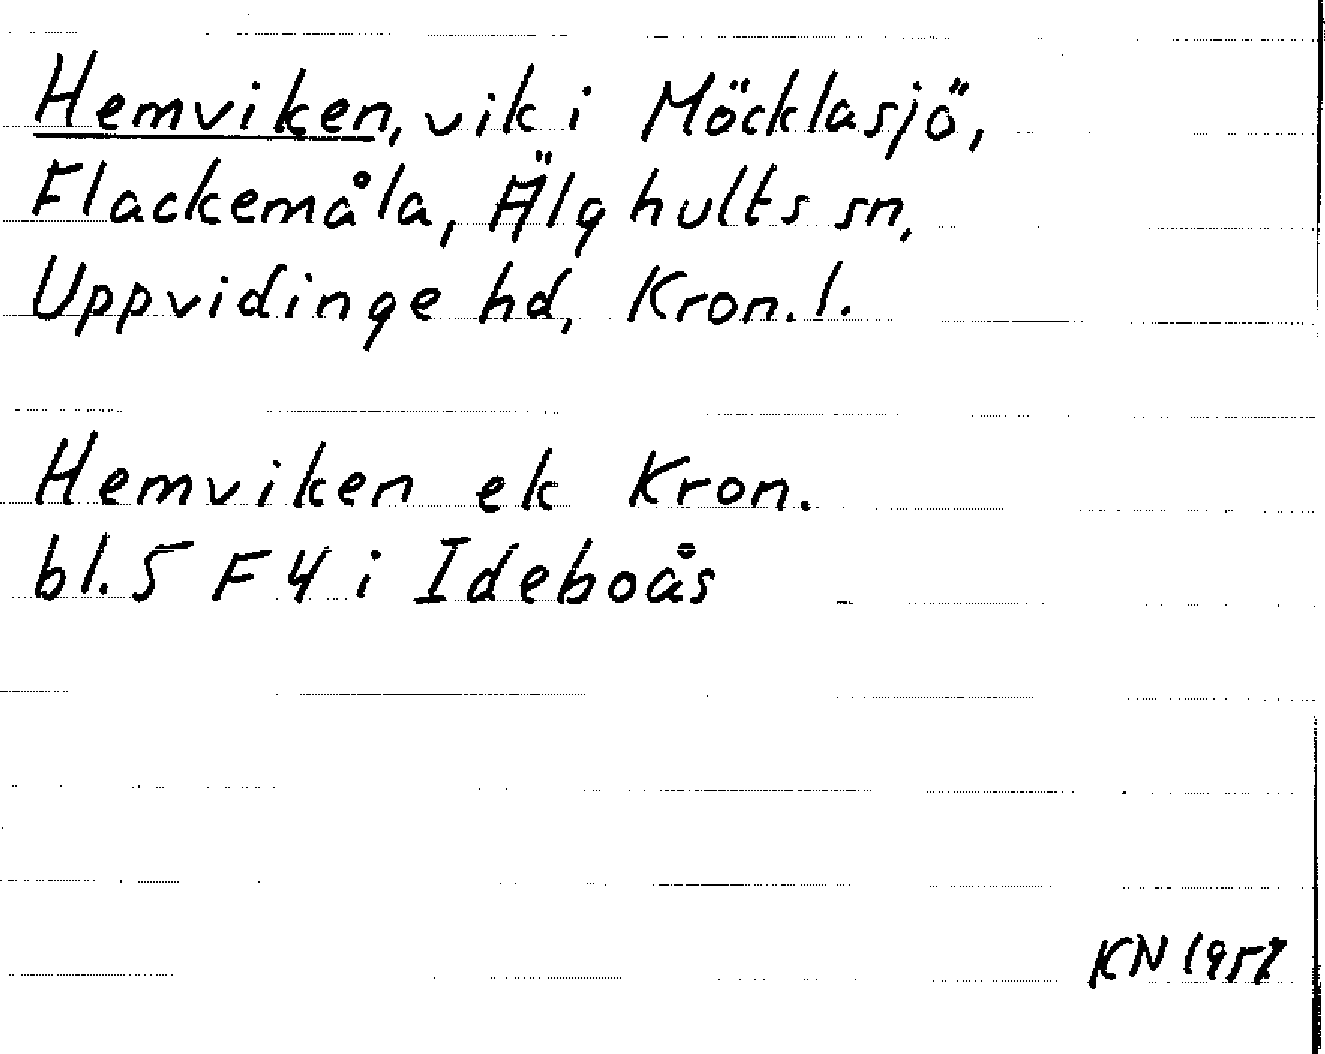 Hemviken, vik i Möcklasjö,
Flackemåla, Älghults sn,
Uppvidinge hd, Kron. l.
Hemviken ek Kron.
bl. 5 F4 i Ideboås
KN 1957